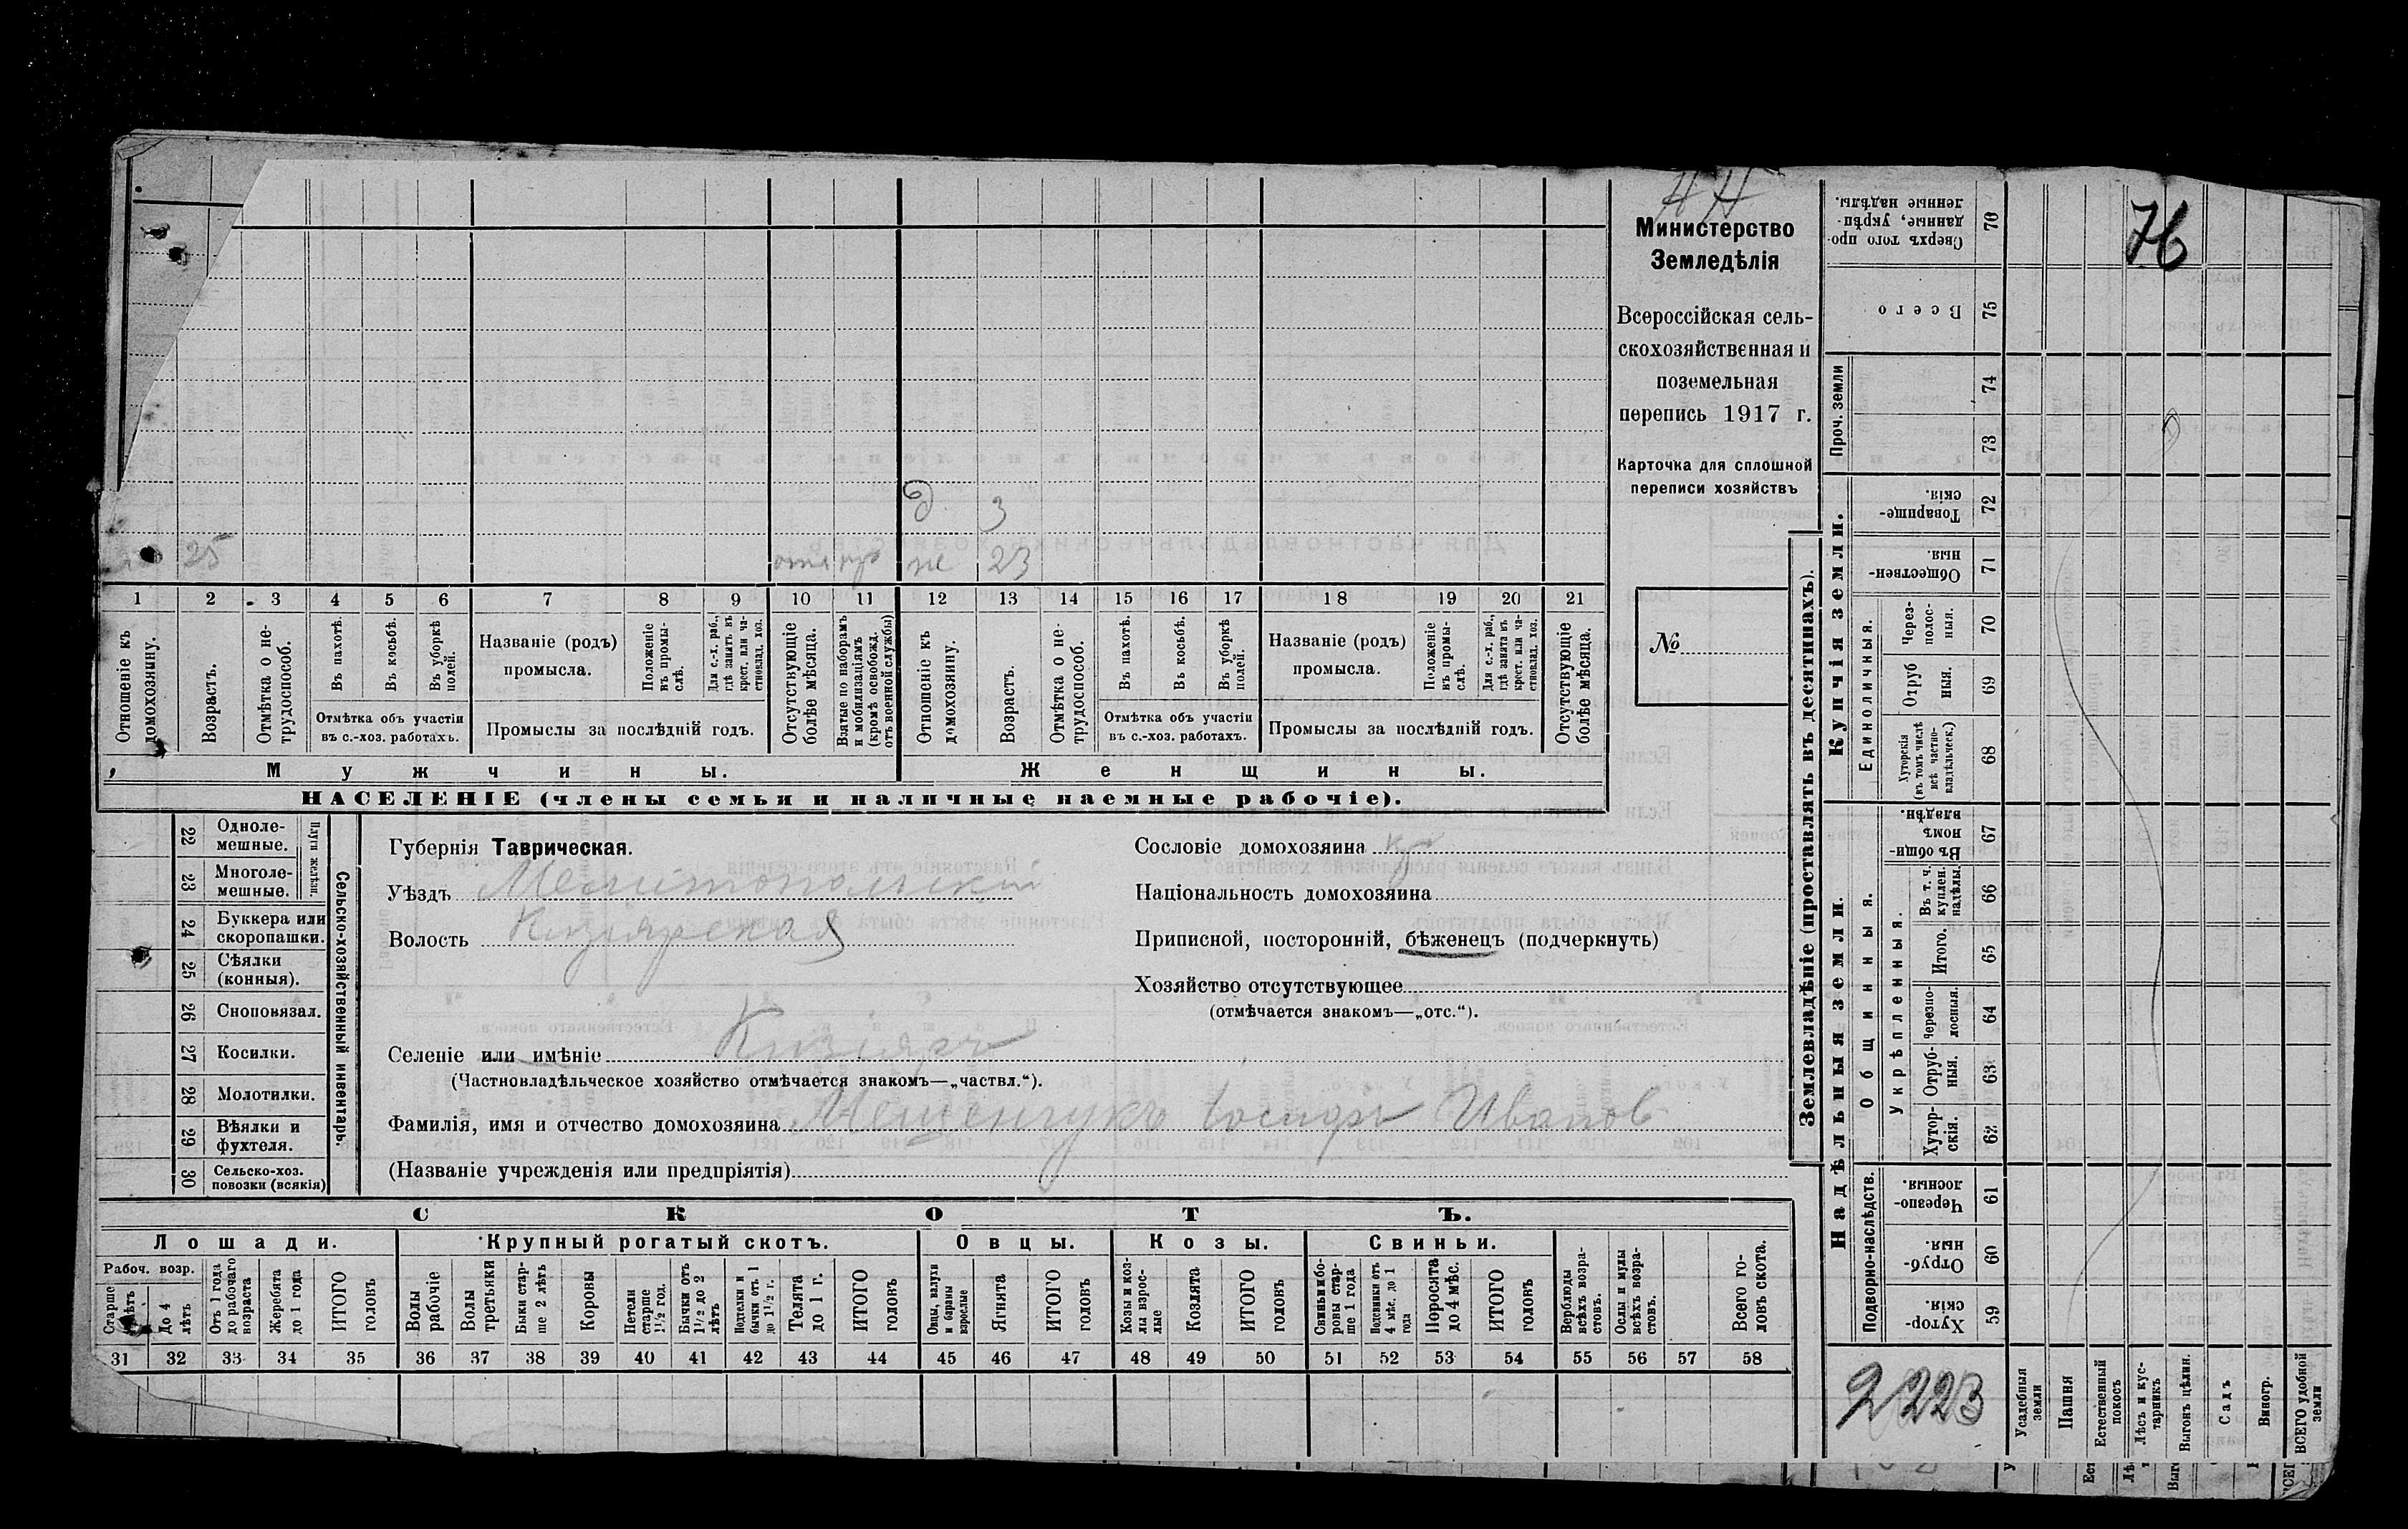 76
Министерство
Земледѣлія
Всероссійская сель-
скохозяйственная и
поземельная
перепись 1917 г.
Карточка для сплошной
переписи хозяйствъ
№
д 3
25 не 23
1 2 3 4 5 6 7 8 9 10 11 12 13 14 15 16 17 18 19 20 21
Отношеніе къ домохозяину.
Возрастъ.
Отмѣтка о не-трудоспособ.
Въ пахотѣ.
Въ косьбѣ.
Въ уборкѣ полей.
Отмѣтка объ участіи
въ с.-хоз. работахъ.
Названіе (родъ)
промысла.
Положеніе въ промы-слѣ.
Для с.-х. раб., гдѣ занятъ въ крест. или ча-стновлад. хоз.
Промыслы за послѣдній годъ.
Отсутствующіе болѣе мѣсяца.
Взятые по наборамъ и мобилизаціямъ (кромѣ освобожд. отъ военной службы)
Отношеніе къ домохозяину.
Возрастъ.
Отмѣтка о не-трудоспособ.
Въ пахотѣ.
Въ косьбѣ.
Въ уборкѣ полей.
Отмѣтка объ участіи
въ с.-хоз. работахъ.
Названіе (родъ)
промысла.
Положеніе въ промы-слѣ.
Для с.-х. раб., гдѣ занята въ крест. или ча-стновлад. хоз.
Промыслы за послѣдній годъ.
Отсутствующіе болѣе мѣсяца.
Мужчины.
Женщины.
НАСЕЛЕНІЕ (члены семьи и наличные наемные рабочіе).
Сельско-хозяйственный инвентарь.
Плуги желѣзн.
22 Одноле-мешные.
23 Многоле-мешные.
24 Буккера или скоропашки.
25 Сѣялки (конныя).
26 Сноповязал.
27 Косилки.
28 Молотилки.
29 Вѣялки и фухтеля.
30 Сельско-хоз. повозки (всякія)
Губернія Таврическая.
Уѣздъ Мелитопольскій
Волость Кизіярская
Селеніе или имѣніе Кизіяръ
(Частновладѣльческое хозяйство отмѣчается знакомъ—„частвл.“).
Сословіе домохозяина кр
Національность домохозяина
Приписной, посторонній, бѣженецъ (подчеркнуть)
Хозяйство отсутствующее
(отмѣчается знакомъ—„отс.“).
Фамилія, имя и отчество домохозяина Мещенчукъ Іосифъ Иванов
(Названіе учрежденія или предпріятія)
СКОТЪ.
Лошади.
Крупный рогатый скотъ.
Овцы.
Козы.
Свиньи.
Рабоч. возр.
Старше лѣтъ
До 4 лѣтъ
Отъ 1 года до рабочаго возраста
Жеребята до 1 года
ИТОГО головъ
Волы рабочіе
Волы третьяки
Быки стар-ше 2 лѣтъ
Коровы
Нетели старше 1½ год.
Бычки отъ 1½ до 2 лѣтъ
Подтелки и бычки отъ 1 до 1½ г.
Телята до 1 г.
ИТОГО головъ
Овцы, валухи и бараны взрослые
Ягнята
ИТОГО головъ
Козы и коз-лы взрос-лые
Козлята
ИТОГО головъ
Свиньи и бо-ровы стар-ше 1 года
Подсвинки отъ 4 мѣс. до 1 года
Поросята до 4 мѣс.
ИТОГО головъ
Верблюды всѣхъ возра-стовъ.
Ослы и мулы всѣхъ возра-стовъ.
Всего го-ловъ скота.
31 32 33 34 35 36 37 38 39 40 41 42 43 44 45 46 47 48 49 50 51 52 53 54 55 56 57 58
Землевладѣніе (проставлять въ десятинахъ).
Купчія земли.
Надѣльныя земли.
Сверхъ того про-данные, укрѣп-ленные надѣлы. 76
Всего 75
Проч. земли 74 73
Товарище-скія. 72
Обществен-ныя 71
Единоличныя.
Через-полос-ныя. 70
Отруб ныя. 69
Хуторскія (въ томъ числѣ всѣ частно-владѣльческ.) 68
Общинныя.
Въ общи-номъ владѣн. 67
Укрѣпленныя.
Въ т. ч. куплен. надѣлы 66
Итого. 65
Черезпо-лосныя. 64
Отруб-ныя. 63
Хутор-скія. 62
Подворно-наслѣдств.
Черезпо-лосныя. 61
Отруб-ныя. 60
Хутор-скія. 59
2223
Усадебныя земли
Пашня
Естественный покосъ
Лѣсъ и кус-тарникъ
Выгонъ цѣлин.
Садъ
Виногр.
ВСЕГО удобной земли